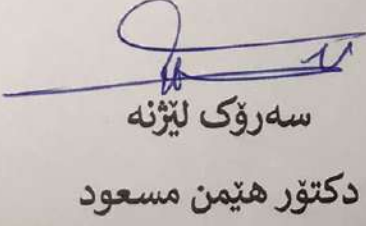 سەرۆک لێژنە
دکتۆر هێمن مسعود